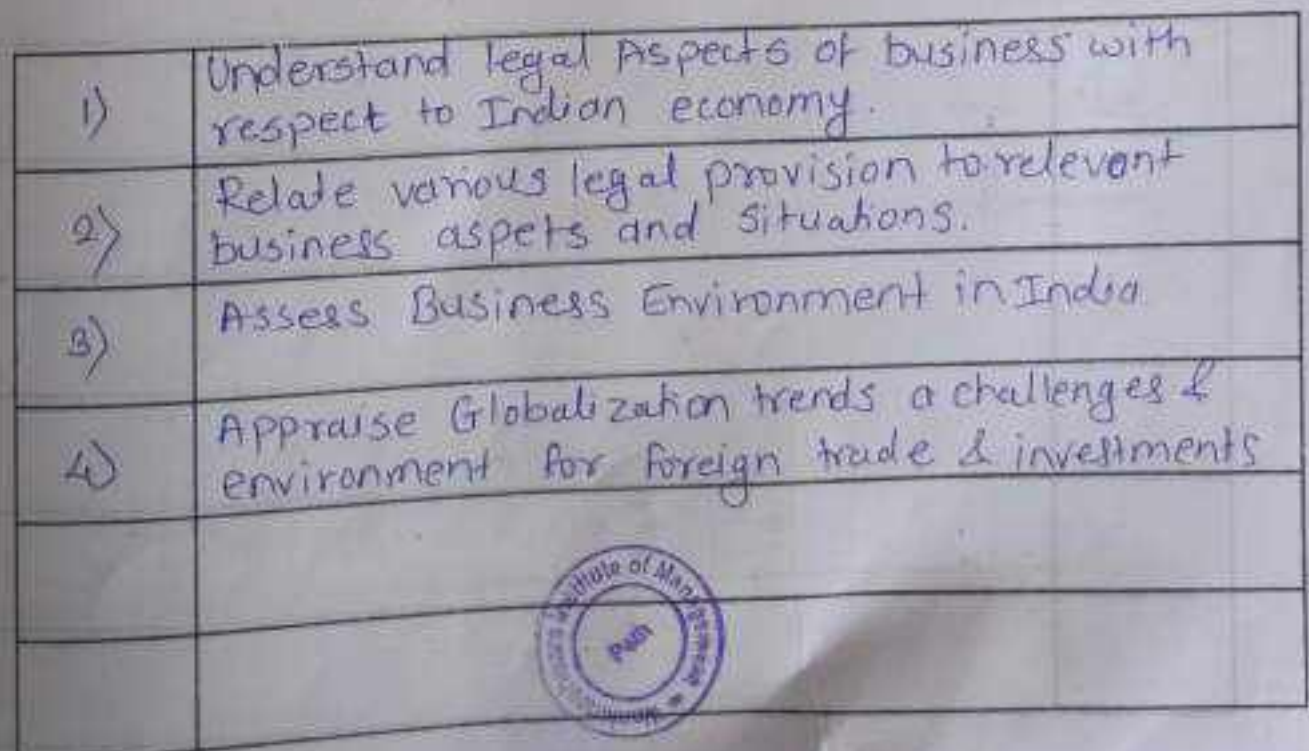 1) Understand legal Aspects of business with
respect to Indian economy.
2) Relate various legal provision to relevant
business aspets and situations.
3) Assess Business Environment in India
4) Appraise Globalization trends a challenges &
environment for foreign trade & investments
Institute of Management